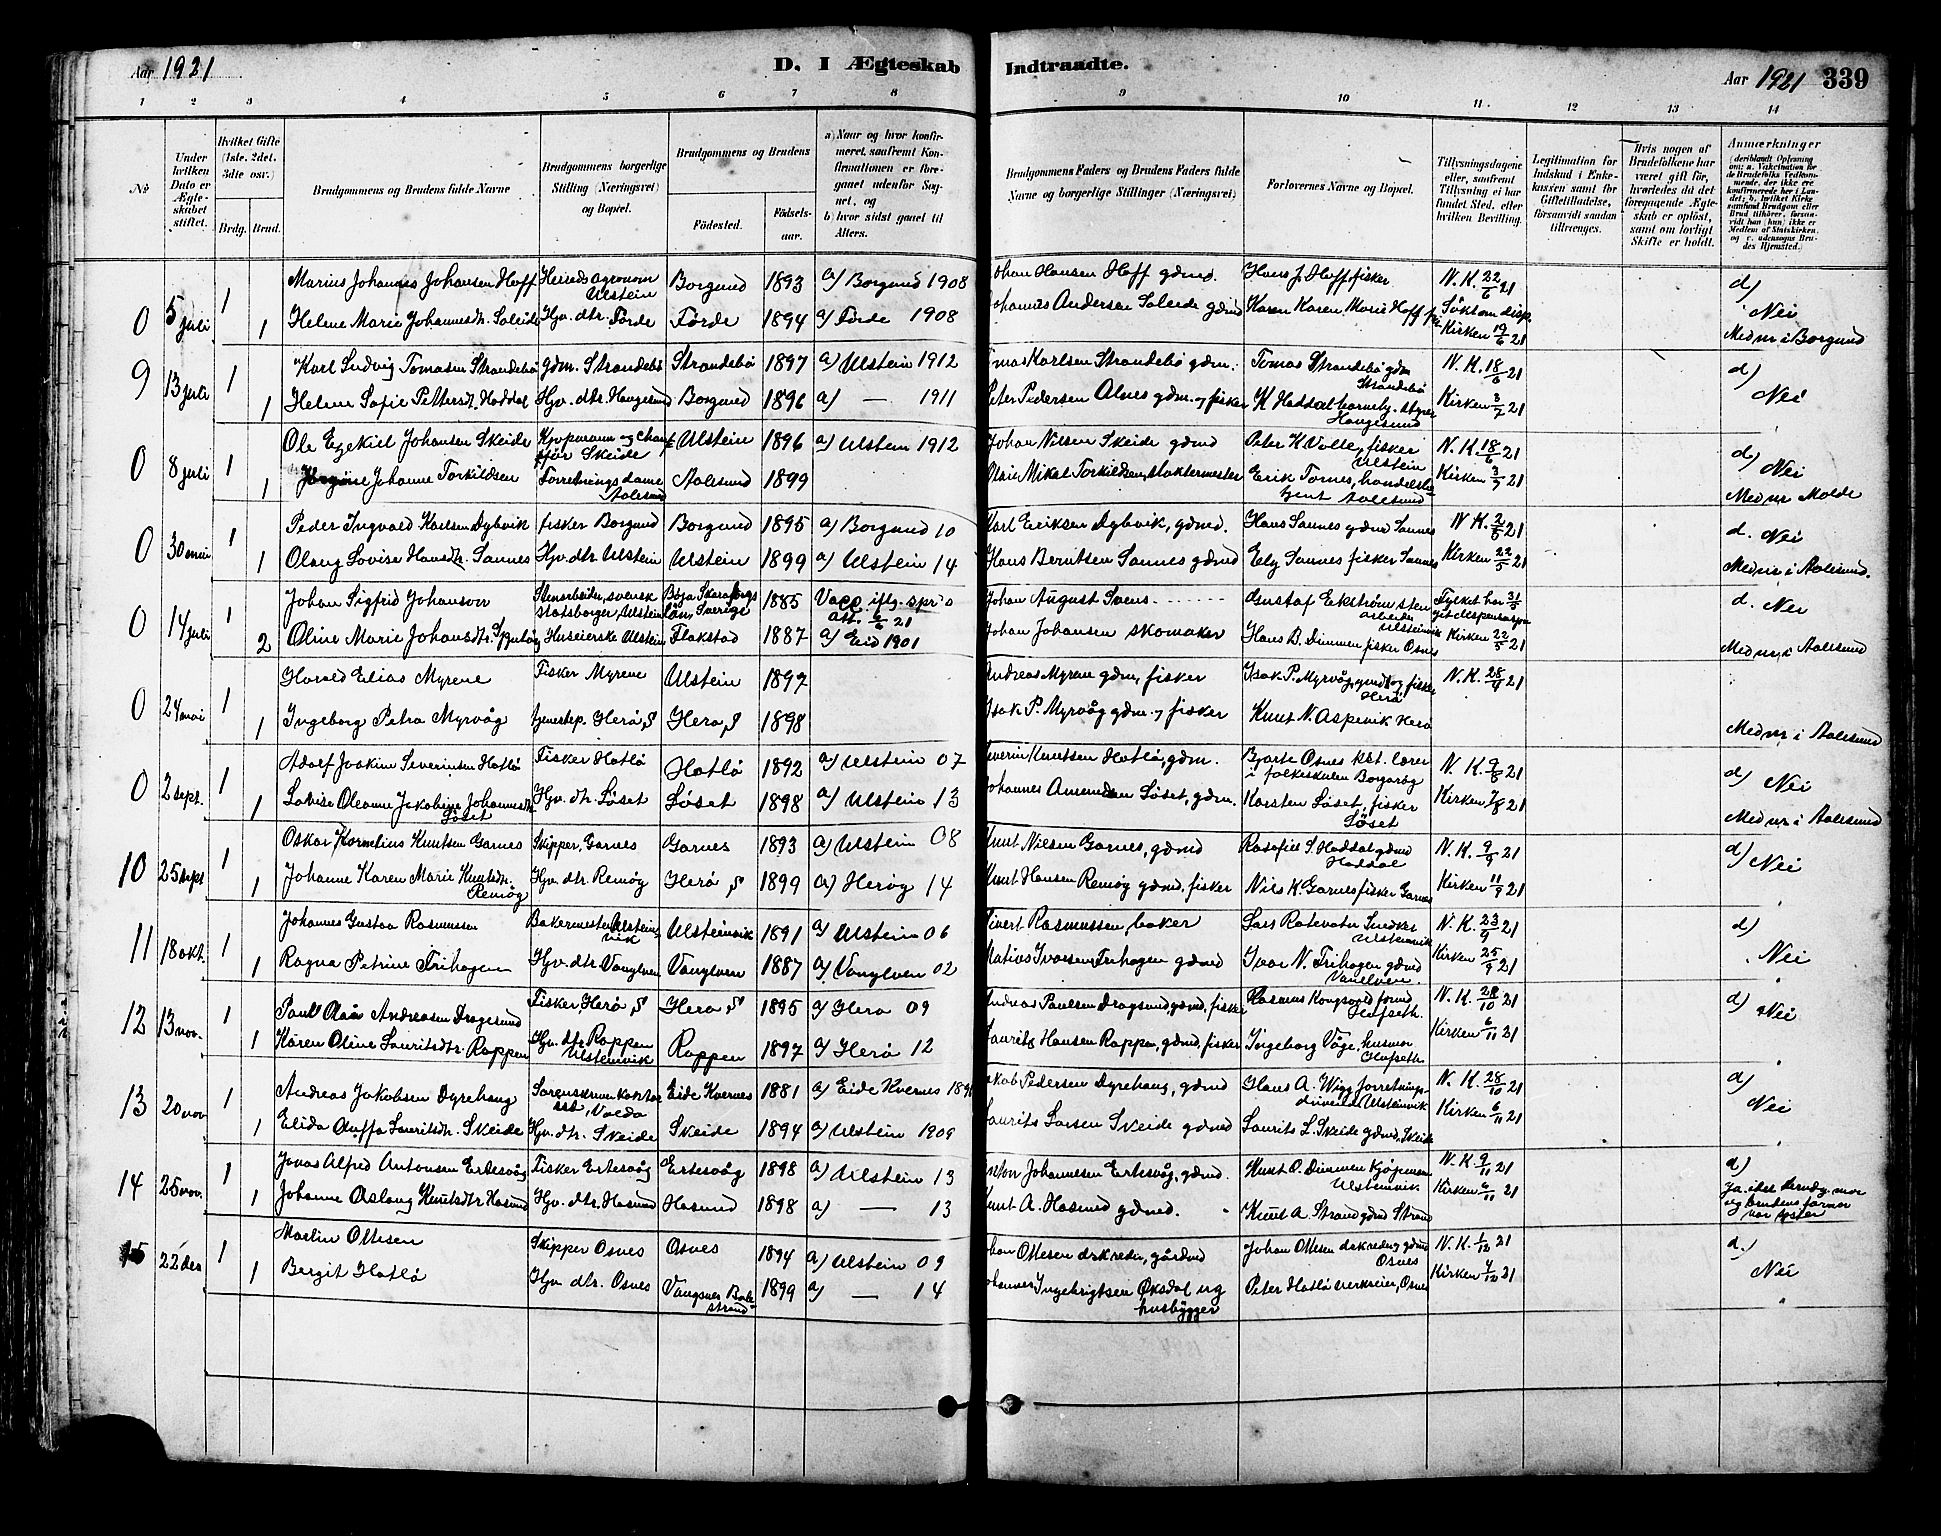 Aar 1921
D. I Ægteskab Indtraadte.
Aar 1921 339
1 2 3 4 5 6 7 8 9 10 11 12 13 14
Nr
Under hvilken Dato er Ægteskabet stiftet.
Hvilket Gifte (1ste, 2det, 3die osv.)
Brdg. Brud.
Brudgommens og Brudens fulde Navne
Brudgommens borgerlige Stilling (Næringsvei) og Bopæl.
Brudgommens og Brudens
Fødested.
Fødselsaar.
a) Naar og hvor konfirmeret, saafremt Konfirmationen er foregaaet udenfor Sognet, og
b) hvor sidst gaaet til Alters.
Brudgommens Faders og Brudens Faders fulde Navne og borgerlige Stillinger (Næringsvei)
Forlovernes Navne og Bopæl.
Tillysningsdagene eller, saafremt Tillysning ei har fundet Sted, efter hvilken Bevilling.
Legitimation for Indskud i Enkekassen samt for Giftetilladelse, forsaavidt saadan tiltrænges.
Hvis nogen af Brudefolkene har været gift før, hvorledes da det foregaaende Ægteskab er opløst, samt om lovligt Skifte er holdt.
Anmærkninger
(deriblandt Oplysning om: a. Vakcination for de Brudefolks Vedkommende, der ikke ere konfirmerede her i Landet; b. hvilket Kirkesamfund Brudgom eller Brud tilhører, forsaavidt han (hun) ikke er Medlem af Statskirken, og c. udensogns Brudes Hjemsted.
0 5 juli 1 Marius Johannes Johansen Hoff Herredsagronom Ulstein Borgund 1893 a) Borgund 1908 Johan Hansen Hoff gdmd. Hans J. Hoff fisker N. K. 22/6 21 d)
1 Helene Marie Johannesdtr. Soleide Hjv. dtr. Förde Förde 1894 a) Förde 1908 Johannes Andersen Soleide gdmd Karen Marie Hoff Søkt om disp. Kirken 19/6 21 Nei
Med nr i Borgund
9 13 juli 1 Karl Ludvig Tomasen Strandebö gdm. Strandebö Strandebö 1897 a) Ulstein 1912 Tomas Karlsen Strandebö gdm. Tomas Strandebö gdm Strandebö N. K. 18/6 21 d)
1 Helene Sofie Pettersdt. Haddal Hjv. dtr. Haugesund Borgund 1896 a) — 1911 Peter Pedersen Alnes gdm. og fisker K Haddal Haugesund Kirken 3/7 21 Nei
0 8 juli 1 Ole Ezekiel Johansen Skeide Kjøpmann og chauffør Skeide Ulstein 1896 a) Ulstein 1912 Johan Nilsen Skeide gdmd Peter K Volle, fisker Ulstein N. K. 18/6 21 d)
1 Johanne Torkildsen Forretningsdame Aalesund Aalesund 1899 Mikal Torkildsen, slaktermester Erik Tornes, handelsbetjent Aalesund Kirken 3/7 21 Nei
Med nr Molde
0 30 mai 1 Peder Ingvald Karlsen Dybvik fisker Borgund Borgund 1895 a) Borgund 10 Karl Eriksen Dybvik, gdmd. Hans Sannes gdmd Sannes N K. 2/5 21 d. Nei
1 Olaug Lovise Hansdtr. Sannes Hjv. dtr. Ulstein Ulstein 1899 a) Ulstein 14 Hans Berntsen Sannes gdmd Ely Sannes fisker Sannes Kirken 22/5 21
Med nr i Aalesund.
0 14 juli 1 Johan Sigfrid Johanson Stenarbeider, svensk statsborger, Ulstein Böja Skaraborgs län, Sverige 1885 Vacc iflg. spr. att. 6/6 21 Johan August Svens- Gustaf Ekström stenarbeider Ulsteinvik Fylket har 31/5 git dispensasjon d. Nei
2 Oline Marie Johansdtr. Huseierske Ulstein Flakstad 1887 a) Eid 1901 Johan Johansen skomaker Hans B. Dimmen fisker Osnes Kirken 22/5 21
Med nr i Aalesund
0 24 mai 1 Harald Elias Myrene Fisker Myrene Ulstein 1897 Andreas Myren gdm, fisker Isak P. Myrvåg, gmd og fisker Herö N. K. 28/4 21
1 Ingeborg Petra Myrvåg tjenestep. Herö, S Herö, S 1898 Isak P. Myrvåg gdm. og fisker Knut N. Aspevik Herö
Med nr i Aalesund
0 2 sept. 1 Adolf Joakim Severinsen Hatlö Fisker Hatlö Hatlö 1892 a) Ulstein 07 Severin Knutsen Hatlö, gdm. Bjarte Osnes kst. lærer i folkeskulen N. K. 9/8 21 d)
1 Lovise Oleanne Jakobine Johannesdtr. Löset Hjv. dtr. Löset Löset 1898 a) Ulstein 13 Johannes Amundsen Löset, gdm. Karsten Löset, fisker Löset Kirken 7/8 21 Nei
Med nr i Aalesund
10 25 sept 1 Oskar Kornelius Knutsen Garnes Skipper, Garnes Garnes 1893 a) Ulstein 08 Knut Nilsen Garnes, gdmd Rasofiel S. Haddal gdmd Haddal N. K. 9/9 21 d) Nei
1 Johanne Karen Marie Knutsdtr. Remøy Hjv. dtr Remöy Herö S 1899 a) Heröy 14 Knut Hansen Remøy gdmd, fisker Nils K. Garnes fisker Garnes Kirken 11/9 21
11 18 okt. 1 Johannes Gustav Rasmussen Bakermester Ulsteinvik Ulsteinvik 1891 a) Ulstein 06 Sivert Rasmussen, baker Lars Ratevatn Ulsteinvik N. K. 23/9 21 d)
1 Ragna Petrine Frihagen Hjv. dtr Vanylven Vanylven 1887 a) Vanylven 02 Matias Ivarsen Frihagen gdmd Ivar N. Frihagen gdmd Vanelven Kirken 25/9 21 Nei
12 13 nov. 1 Paul Andreasen Dragesund Fisker, Herö S Herö S 1895 a) Herö 09 Andreas Paulsen Dragsund gdmd, fisker Rasmus Kongsvold N. K. 28/10 21 d)
1 Karen Oline Lauritsdtr. Rappen Hjv. dtr Rappen Ulsteinvik Rappen 1897 a) Herö 12 Laurits Hansen Rappen, gdmd, fisker Ingeborg Våge, husmor Kirken 6/11 21 Nei
13 20 nov 1 Andreas Jakobsen Dyrehaug Sorenskriverkontorist, Volda Eide Kvernes 1881 a) Eide Kvernes Jakob Pedersen Dyrehaug, gdmd Hans A. Wiig forretningsdrivende Ulsteinvik N. K. 28/10 21 d)
1 Elida Lauritsdtr. Skeide Hjv. dtr. Skeide Skeide 1894 a) Ulstein 1909 Laurits Larsen Skeide gdmd Laurits L. Skeide gdmd, Skeide Kirken 6/11 21 Nei
14 25 nov. 1 Jonas Alfred Antonsen Ertesvåg Fisker Ertesvåg Ertesvåg 1898 a) Ulstein 13 Anton Johannesen Ertesvåg, gdmd. Knut O. Dimmen kjøpmann Ulsteinvik N. K. 9/11 21 d)
1 Johanne Aslaug Knutsdtr. Hasund Hjv. dtr. Hasund Hasund 1898 a) — 13 Knut A. Hasund gdmd. Knut A. Strand gdmd Strand Kirken 6/11 21 Ja. idet brudg. mor og brudens farmor var søster
15 22 des 1 Martin Ottesen Skipper Osnes Osnes 1894 a) Ulstein 09 Johan Ottesen gårdmd Johan Ottesen gdmd Osnes N. K. 1/12 21 d.)
1 Bergit Hatlö Hjv. dtr. Osnes Vangsnes Balestrand 1899 a) — 14 Johannes Ingebrigtsen Öksdal ug husbygger Peter Hatlö verkseier, Osnes Kirken 4/12 21 Nei